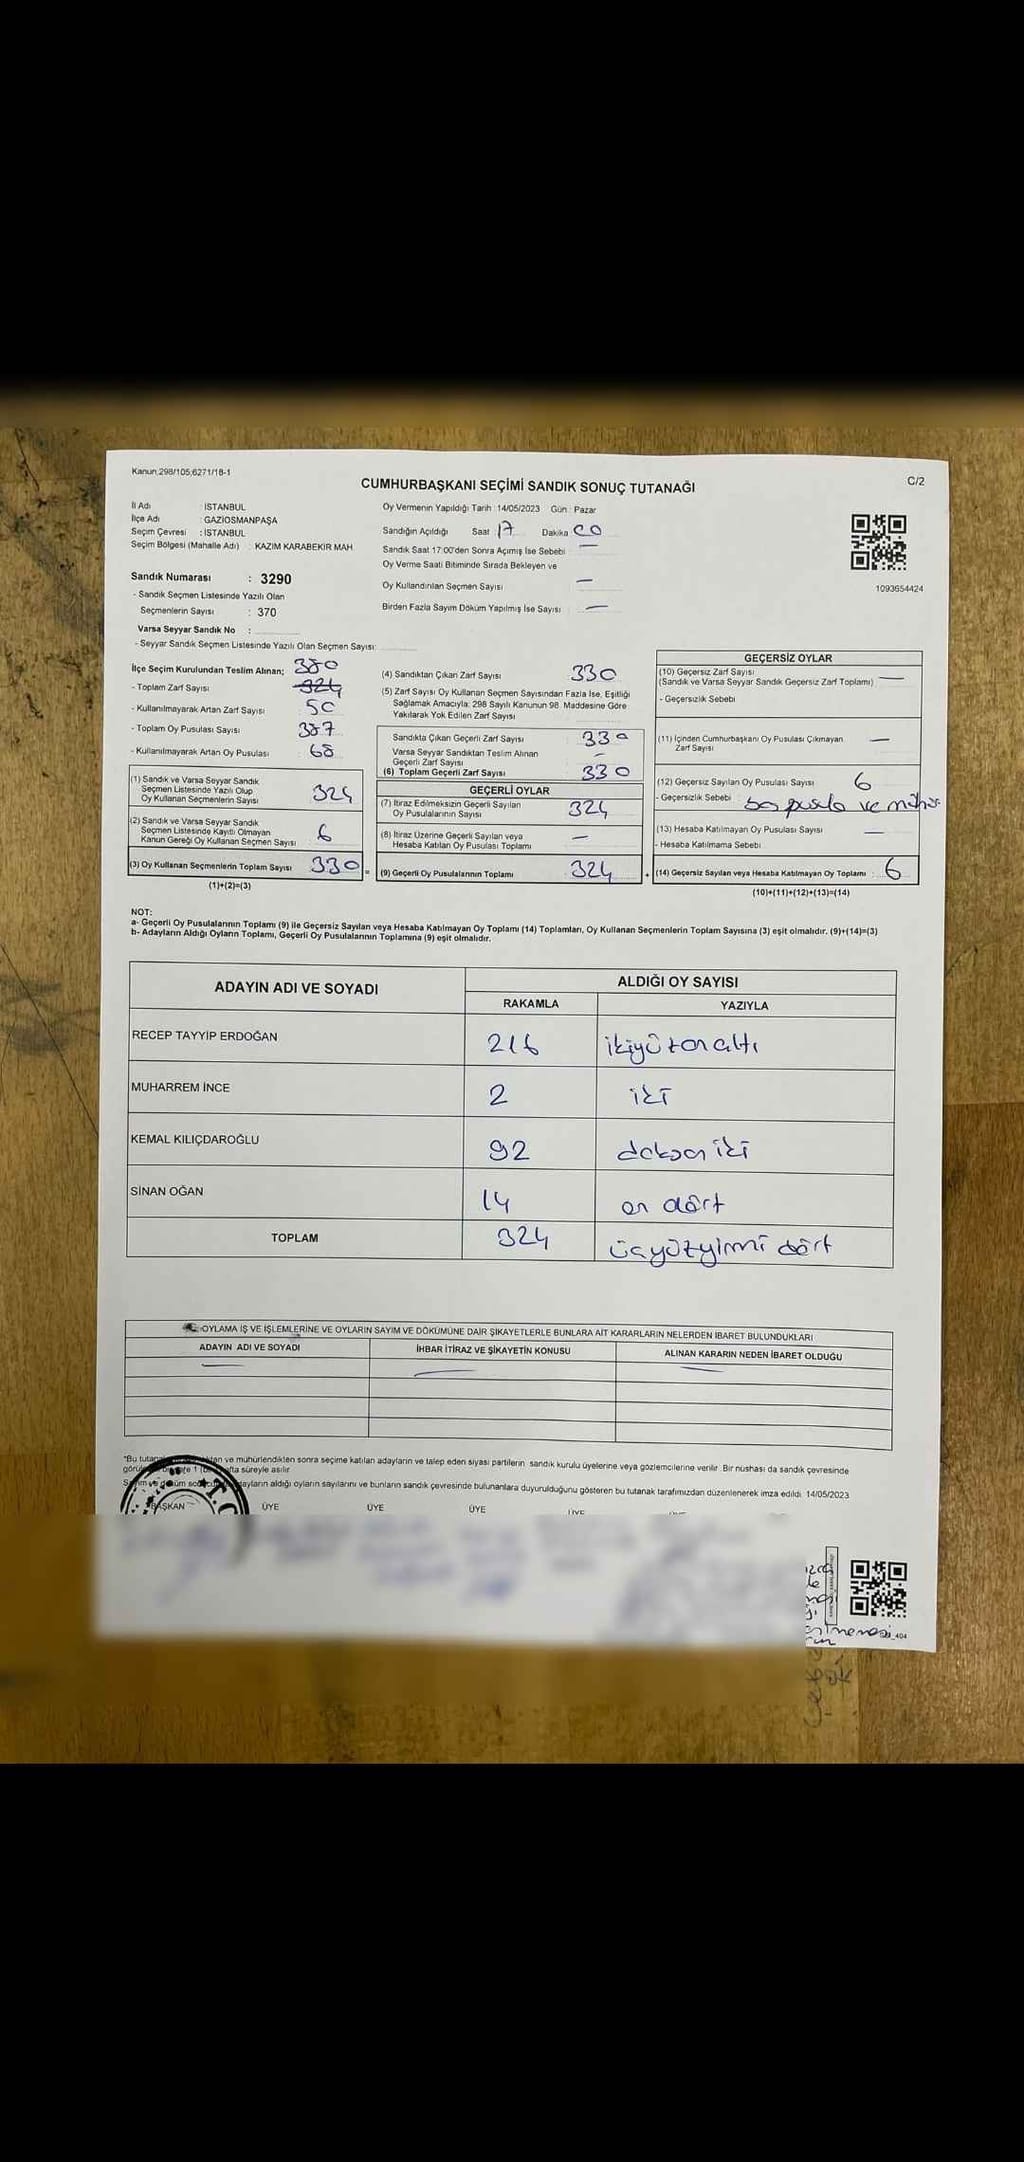 Kanun,298/105,6271/18-1
C/2
CUMHURBAŞKANI SEÇİMİ SANDIK SONUÇ TUTANAĞI
İl Adı : İSTANBUL
İlçe Adı : GAZİOSMANPAŞA
Seçim Çevresi : İSTANBUL
Seçim Bölgesi (Mahalle Adı) : KAZIM KARABEKİR MAH
Sandık Numarası : 3290
- Sandık Seçmen Listesinde Yazılı Olan
Seçmenlerin Sayısı : 370
Varsa Seyyar Sandık No :
- Seyyar Sandık Seçmen Listesinde Yazılı Olan Seçmen Sayısı:
Oy Vermenin Yapıldığı Tarih : 14/05/2023 Gün : Pazar
Sandığın Açıldığı Saat 17 Dakika 00
Sandık Saat 17:00'den Sonra Açımış İse Sebebi —
Oy Verme Saati Bitiminde Sırada Bekleyen ve
Oy Kullandırılan Seçmen Sayısı —
Birden Fazla Sayım Döküm Yapılmış İse Sayısı —
1093654424
İlçe Seçim Kurulundan Teslim Alınan; 380
- Toplam Zarf Sayısı 324
- Kullanılmayarak Artan Zarf Sayısı 50
- Toplam Oy Pusulası Sayısı 387
- Kullanılmayarak Artan Oy Pusulası 68
(1) Sandık ve Varsa Seyyar Sandık
Seçmen Listesinde Yazılı Olup
Oy Kullanan Seçmenlerin Sayısı 324
(2) Sandık ve Varsa Seyyar Sandık
Seçmen Listesinde Kayıtlı Olmayan
Kanun Gereği Oy Kullanan Seçmen Sayısı 6
(3) Oy Kullanan Seçmenlerin Toplam Sayısı 330 =
(1)+(2)=(3)
(4) Sandıktan Çıkan Zarf Sayısı 330
(5) Zarf Sayısı Oy Kullanan Seçmen Sayısından Fazla İse, Eşitliği
Sağlamak Amacıyla; 298 Sayılı Kanunun 98. Maddesine Göre
Yakılarak Yok Edilen Zarf Sayısı
Sandıkta Çıkan Geçerli Zarf Sayısı 330
Varsa Seyyar Sandıktan Teslim Alınan
Geçerli Zarf Sayısı
(6) Toplam Geçerli Zarf Sayısı 330
GEÇERLİ OYLAR
(7) İtiraz Edilmeksizin Geçerli Sayılan
Oy Pusulalarının Sayısı 324
(8) İtiraz Üzerine Geçerli Sayılan veya
Hesaba Katılan Oy Pusulası Toplamı —
(9) Geçerli Oy Pusulalarının Toplamı 324 +
GEÇERSİZ OYLAR
(10) Geçersiz Zarf Sayısı
(Sandık ve Varsa Seyyar Sandık Geçersiz Zarf Toplamı) —
- Geçersizlik Sebebi
(11) İçinden Cumhurbaşkanı Oy Pusulası Çıkmayan
Zarf Sayısı —
(12) Geçersiz Sayılan Oy Pusulası Sayısı 6
- Geçersizlik Sebebi : boş pusula ve mühür
(13) Hesaba Katılmayan Oy Pusulası Sayısı —
- Hesaba Katılmama Sebebi
(14) Geçersiz Sayılan veya Hesaba Katılmayan Oy Toplamı : 6
(10)+(11)+(12)+(13)=(14)
NOT:
a- Geçerli Oy Pusulalarının Toplamı (9) ile Geçersiz Sayılan veya Hesaba Katılmayan Oy Toplamı (14) Toplamları, Oy Kullanan Seçmenlerin Toplam Sayısına (3) eşit olmalıdır. (9)+(14)=(3)
b- Adayların Aldığı Oyların Toplamı, Geçerli Oy Pusulalarının Toplamına (9) eşit olmalıdır.
ADAYIN ADI VE SOYADI
ALDIĞI OY SAYISI
RAKAMLA YAZIYLA
RECEP TAYYİP ERDOĞAN 216 ikiyüzonaltı
MUHARREM İNCE 2 iki
KEMAL KILIÇDAROĞLU 92 doksan iki
SİNAN OĞAN 14 on dört
TOPLAM 324 üçyüzyirmi dört
OYLAMA İŞ VE İŞLEMLERİNE VE OYLARIN SAYIM VE DÖKÜMÜNE DAİR ŞİKAYETLERLE BUNLARA AİT KARARLARIN NELERDEN İBARET BULUNDUKLARI
ADAYIN ADI VE SOYADI İHBAR İTİRAZ VE ŞİKAYETİN KONUSU ALINAN KARARIN NEDEN İBARET OLDUĞU
ve mühürlendikten sonra seçime katılan adayların ve talep eden siyasi partilerin sandık kurulu üyelerine veya gözlemcilerine verilir. Bir nüshası da sandık çevresinde
süreyle asılır
adayların aldığı oyların sayılarını ve bunların sandık çevresinde bulunanlara duyurulduğunu gösteren bu tutanak tarafımızdan düzenlenerek imza edildi. 14/05/2023
BAŞKAN ÜYE ÜYE ÜYE
T.C.